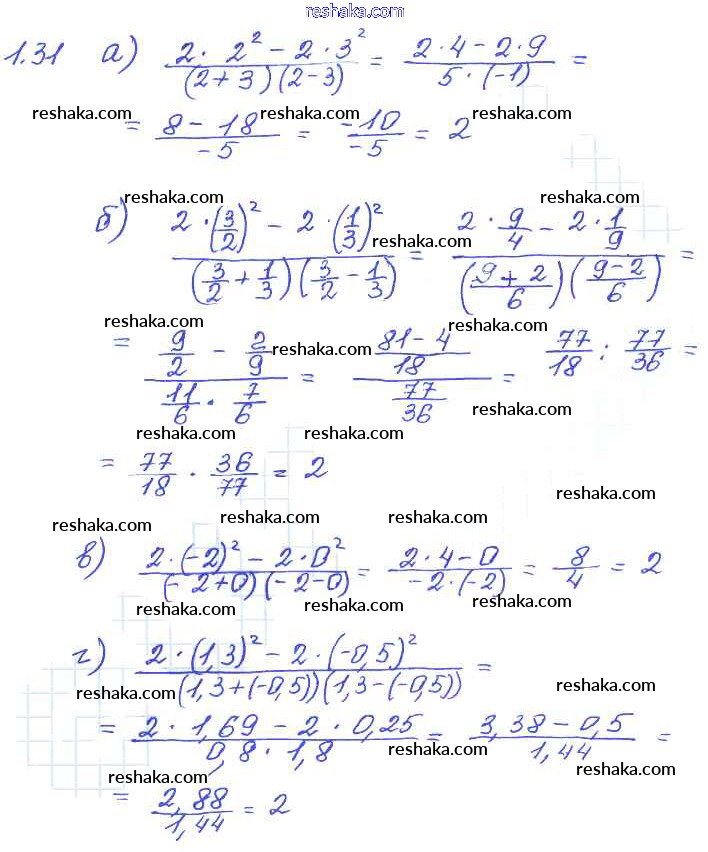 reshaka.com
1.31 а) (2 · 2² − 2 · 3²)/((2+3)(2−3)) = (2 · 4 − 2 · 9)/(5 · (−1)) =
reshaka.com reshaka.com reshaka.com
= (8 − 18)/(−5) = (−10)/(−5) = 2
reshaka.com reshaka.com
б) (2 · (3/2)² − 2 · (1/3)²)/((3/2 + 1/3)(3/2 − 1/3)) = (2 · 9/4 − 2 · 1/9)/(((9+2)/6)((9−2)/6)) =
reshaka.com
reshaka.com reshaka.com
= (9/2 − 2/9)/(11/6 · 7/6) = ((81−4)/18)/(77/36) = 77/18 : 77/36 =
reshaka.com
reshaka.com
reshaka.com reshaka.com
= 77/18 · 36/77 = 2
reshaka.com
reshaka.com reshaka.com
в) (2·(−2)² − 2·0²)/((−2+0)(−2−0)) = (2·4−0)/(−2·(−2)) = 8/4 = 2
reshaka.com reshaka.com reshaka.com
г) (2 · (1,3)² − 2 · (−0,5)²)/((1,3+(−0,5))(1,3−(−0,5))) =
reshaka.com reshaka.com
= (2 · 1,69 − 2 · 0,25)/(0,8 · 1,8) = (3,38 − 0,5)/1,44 =
reshaka.com
reshaka.com reshaka.com
= 2,88/1,44 = 2
reshaka.com